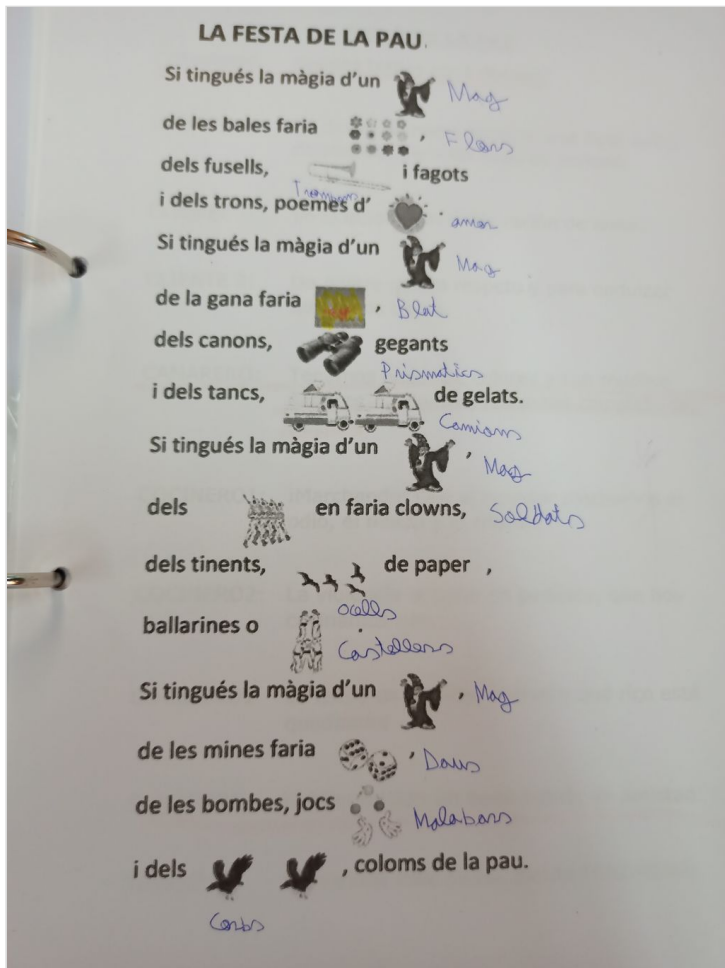 LA FESTA DE LA PAU.
Si tingués la màgia d'un Mag
de les bales faria , Flors
dels fusells, i fagots
Trombons
i dels trons, poemes d' . amor
Si tingués la màgia d'un Mag
de la gana faria , Blat
dels canons, gegants
Prismatics
i dels tancs, de gelats.
Camions
Si tingués la màgia d'un , Mag
dels en faria clowns, Soldats
dels tinents, de paper ,
ocells
ballarines o .
Castellers
Si tingués la màgia d'un , Mag
de les mines faria , Daus
de les bombes, jocs Malabars
i dels , coloms de la pau.
Corbs